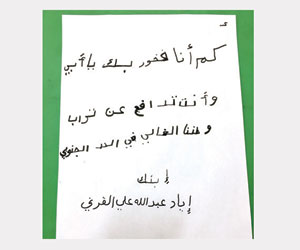 كم أنا فخور بك يا أبي
وأنت تدافع عن تراب
وطننا الغالي في الحد الجنوبي
إبنك
إياد عبدالله علي القرني